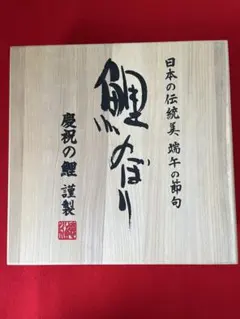 日本の伝統美 端午の節句
鯉のぼり
慶祝の鯉 謹製